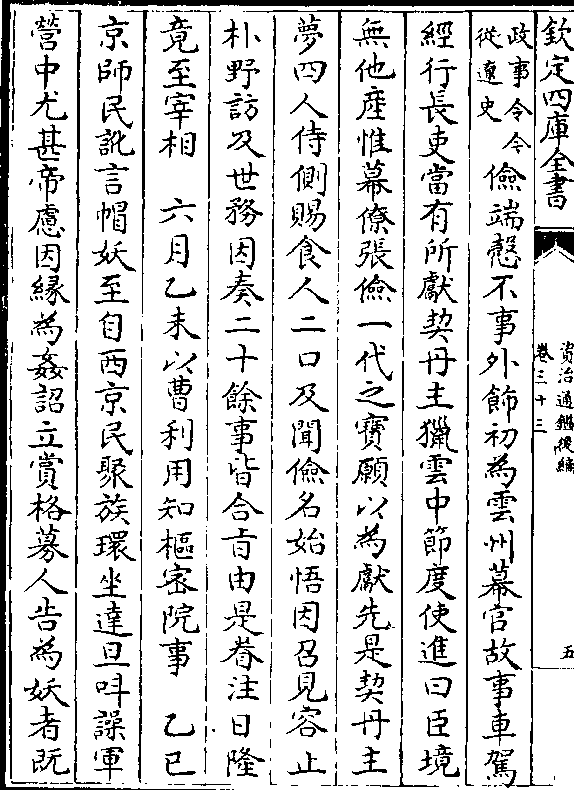 欽定四庫全書
資治通鑑後編
卷三十三
五
政事令令
從遼史
儉端慤不事外飾初為雲州幕官故事車駕
經行長吏當有所獻契丹主獵雲中節度使進曰臣境
無他產惟幕僚張儉一代之寶願以為獻先是契丹主
夢四人侍側賜食人二口及聞儉名始悟因召見容止
朴野訪及世務因奏二十餘事皆合旨由是眷注日隆
竟至宰相　六月乙未以曹利用知樞密院事　乙巳
京師民訛言帽妖至自西京民聚族環坐達旦叫譟軍
營中尤甚帝慮因緣為姦詔立賞格募人告為妖者既